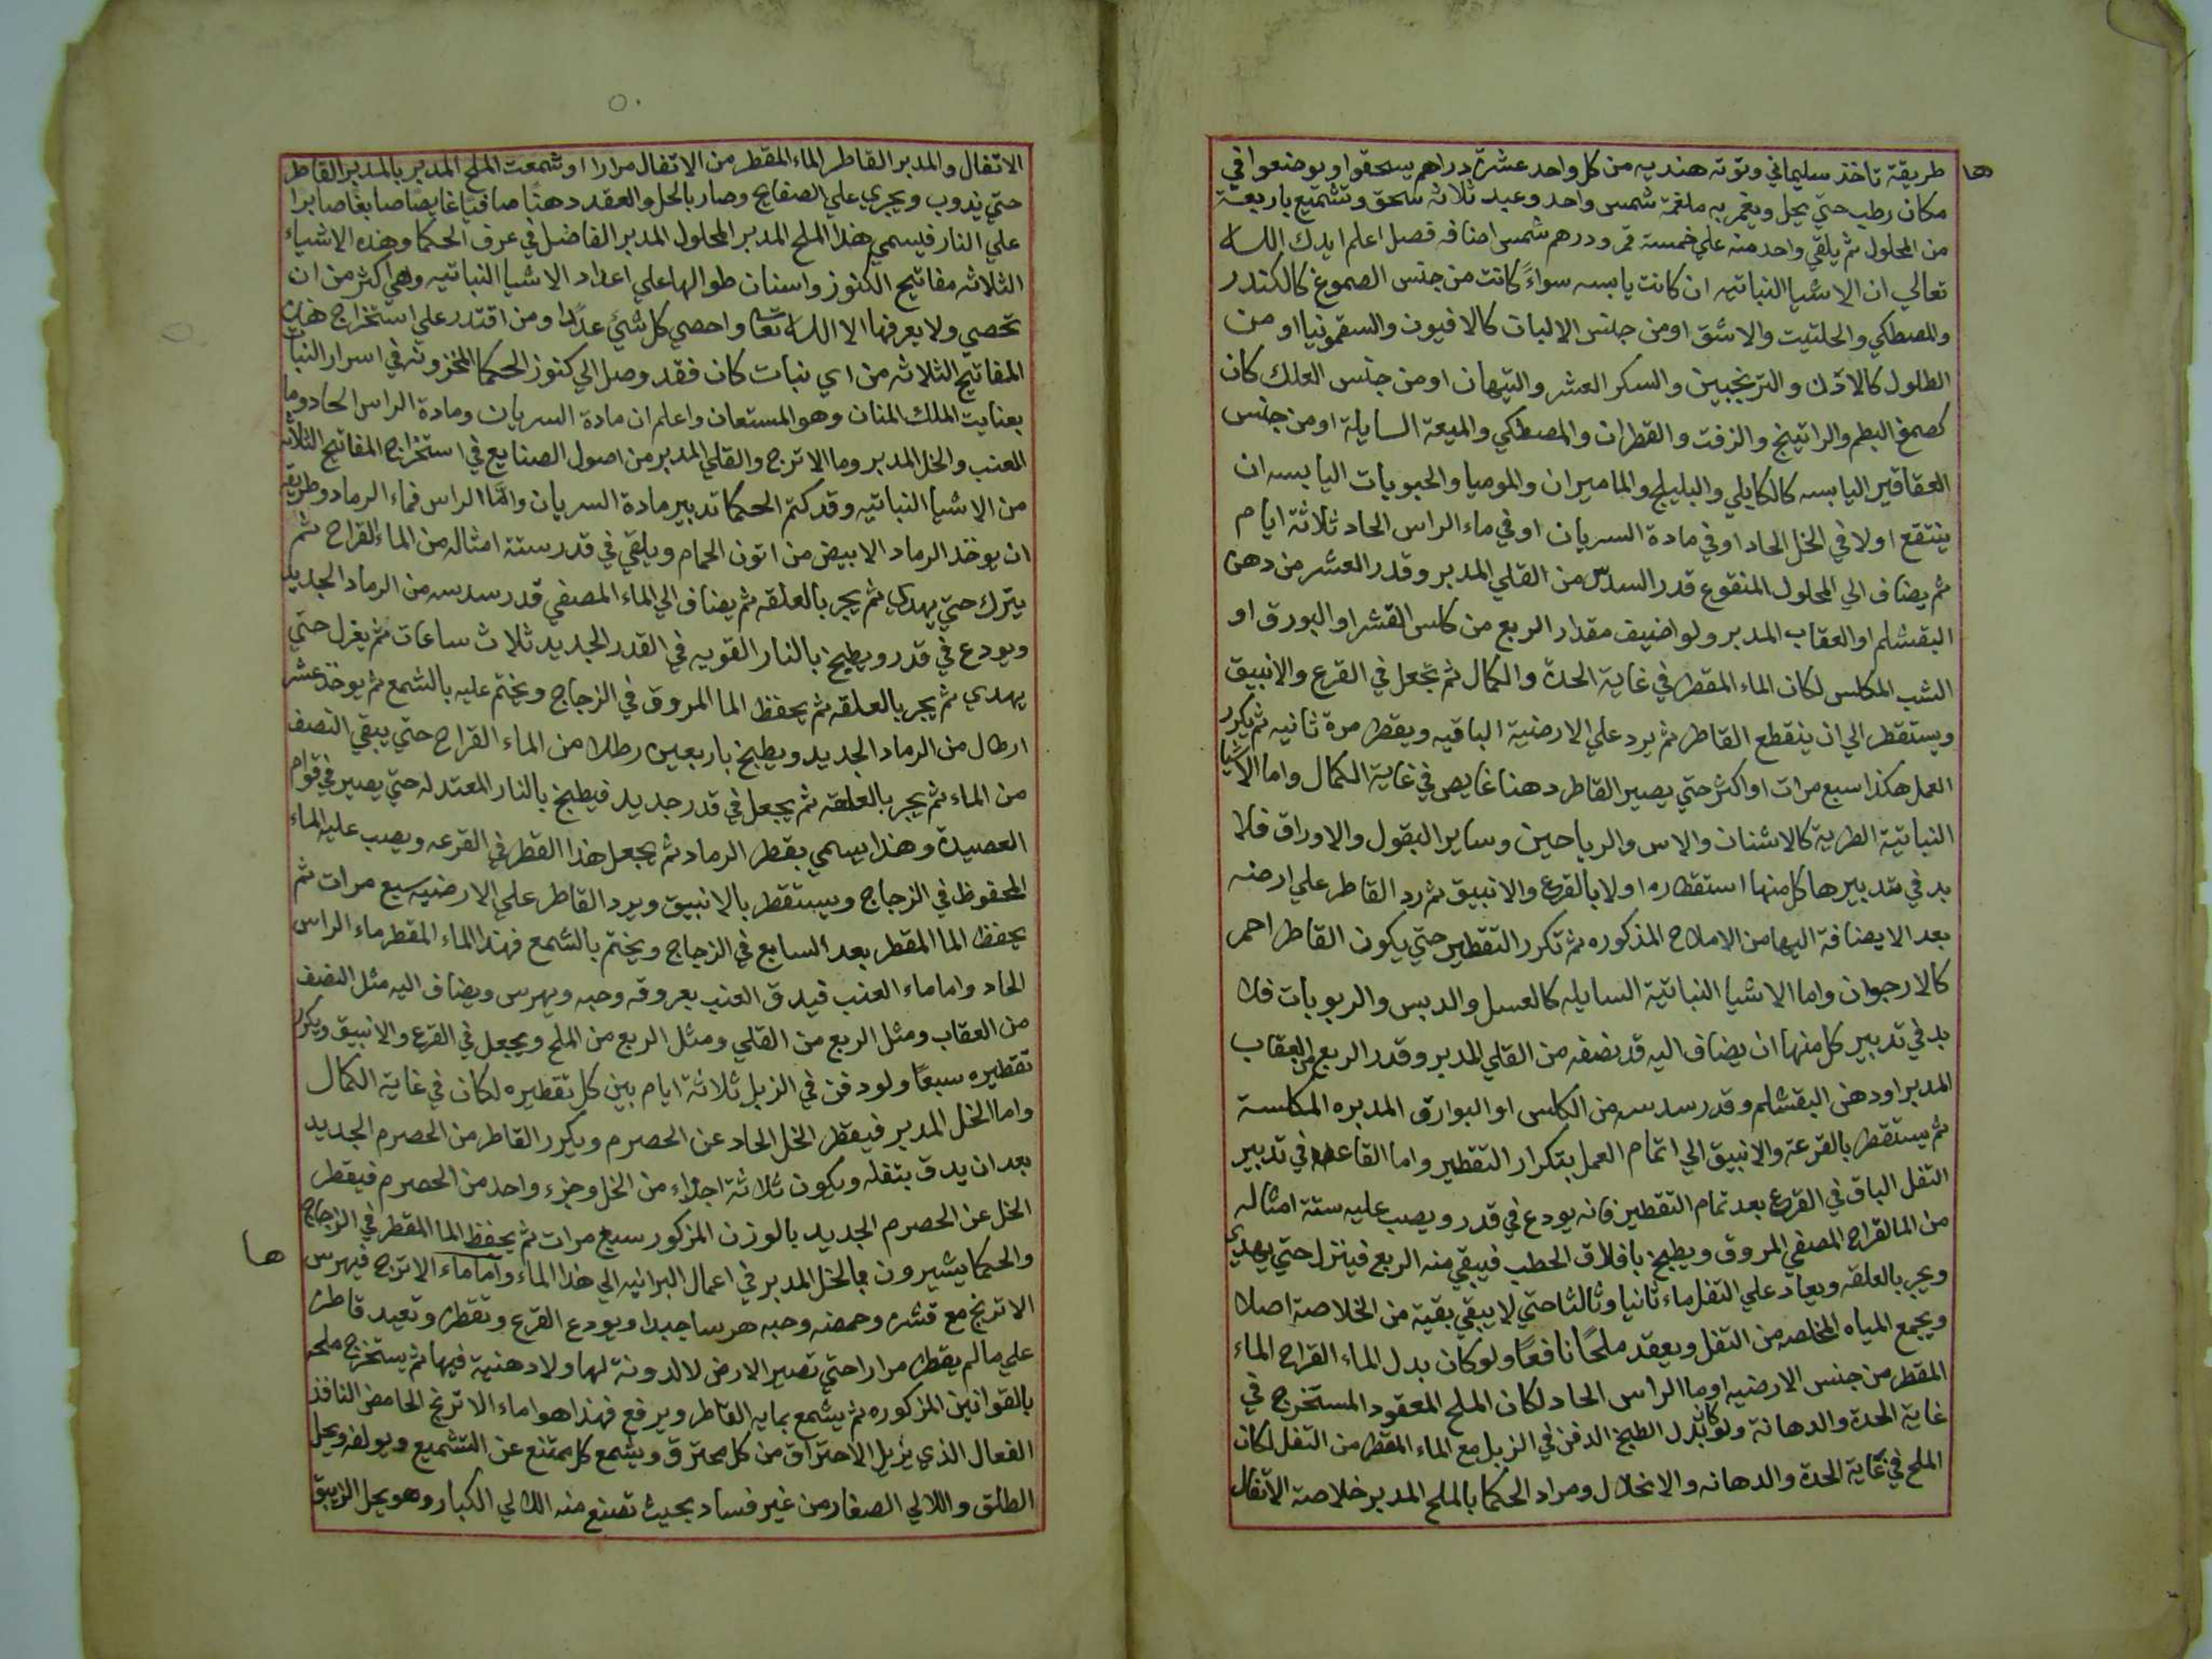 طريقة تاخذ سليماني وتوته هنديه من كل واحد عشرة دراهم يسحقوا ويوضعوا في
مكان رطب حتي يحل ويغمر به ملغمة شمس واحد وعبد ثلاثه سحق وتشميع باربعة
من المحلول ثم يلقي واحد منه علي خمسة قمر ودرهم شمس اضافه فصل اعلم ايدك الله
تعالي ان الاشيا النباتيه ان كانت يابسه سواءً كانت من جنس الصموغ كالكندر
والمصطكي والحلتيت والاشق او من جنس الالبات كالافيون والسقمونيا او من
الطلول كالادن والترنجبين والسكر العشر والتيهان او من جنس العلك كان
كصمغ البطم والراتينج والزفت والقطران والمصطكي والميعة السايلة او من جنس
العقاقير اليابسه كالكابلي والبليلج والماميران والموميا والحبوبات اليابسه ان
ينتقع اولا في الخل الحاد او في مادة السريان او في ماء الراس الحاد ثلاثة ايام
ثم يضاف الي المحلول المنقوع قدر السدس من القلي المدبر وقدر العشر من دهن
البقشلم او العقاب المدبر ولو اضيف مقدار الربع من كلس القشر او البورق او
الشب المكلس لكان الماء المقطر في غاية الحدة والكمال ثم تجعل في القرع والانبيق
ويستقطر الي ان ينقطع القاطر ثم يرد علي الارضية الباقيه ويقطر مرة ثانيه ثم يكرر
العمل هكذا سبع مرات او اكثر حتي يصير القاطر دهنا غايص في غاية الكمال واما الاشيا
النباتية الطرية كالاشنان والاس والرياحين وساير البقول والاوراق فلا
بد في تدبيرها كل منها استقطاره اولا بالقرع والانبيق ثم رد القاطر علي ارضه
بعد الايضافة اليها من الاملاح المذكوره ثم تكرر التقطير حتي يكون القاطر احمر
كالارجوان واما الاشيا النباتية السايله كالعسل والدبس والربوبات فلا
بد في تدبير كل منها ان يضاف اليه قد نصفه من القلي المدبر وقدر الربع من العقاب
المدبر او دهن البقشلم وقدر سدسه من الكلس او البوارق المدبره المكلسة
ثم يستقطر بالقرعة والانبيق الي اتمام العمل بتكرار التقطير واما القاعده في تدبير
التفل الباق في القرع بعد تمام التقطير فانه يودع في قدر ويصب عليه ستة امثاله
من الما القراح المصفي المروق ويطبخ بافلاق الحطب فيبقي منه الربع فينزل حتي يهدي
ويجر بالعلقه ويعاد علي التفل ماء ثانيا وثالثا حتي لا يبقي بقية من الخلاصة اصلا
ويجمع المياه المخلصه من التفل ويعقد ملحًا نافعًا ولو كان بدل الماء القراح الماء
المقطر من جنس الارضيه او ما الراس الحاد لكان الملح المعقود المستخرج في
غاية الحدة والدهانة ولو كان بدل الطبخ الدفن في الزبل مع الماء المقطر من التفل لكان
الملح في غاية الحدة والدهانه والانحلال ومراد الحكما بالملح المدبر خلاصة الاتفال
الاتفال والمدبر القاطر الماء المقطر من الاتفال مرارا او شمعت الملح المدبر بالمدبر القاطر
حتي يذوب ويجري علي الصفايح وصار بالحل والعقد دهنًا صافيًا غايصًا صابغًا صابرا
علي النار فيسمي هذا الملح المدبر المحلول المدبر الفاضل في عرف الحكما وهذه الاشياء
الثلاثه مفاتيح الكنوز واسنان طوالها علي اعداد الاشيا النباتيه وهي اكثر من ان
تحصي ولا يعرفها الا الله تعا واحصي كل شيئ عددًا ومن اقتدر علي استخراج هذه
المفاتيح الثلاثه من اي نبات كان فقد وصل الي كنوز الحكما المخزونه في اسرار النبات
بعنايت الملك المنان وهو المستعان واعلم ان مادة السريان ومادة الراس الحاد وما
العنب والخل المدبر وما الاترج والقلي المدبر من اصول الصنايع في استخراج المفاتيح الثلاثه
من الاشيا النباتيه وقد كتم الحكما تدبير مادة السريان واما الراس فماء الرماد وطريقه
ان يوخذ الرماد الابيض من اتون الحمام ويلقي في قدر ستة امثاله من الماء القراح ثم
يترك حتي يهدي ثم يجر بالعلقه ثم يضاف الي الماء المصفي قدر سدسه من الرماد الجديد
ويودع في قدر ويطبخ بالنار القويه في القدر الجديد ثلاث ساعات ثم يغزل حتي
يهدي ثم يجر بالعلقه ثم يحفظ الما المروق في الزجاج ويختم عليه بالشمع ثم يوخذ عشر
ارطال من الرماد الجديد ويطبخ باربعين رطلا من الماء القراح حتي يبقي النصف
من الماء ثم يجر بالعلقه ثم يجعل في قدر جديد فيطبخ بالنار المعتدله حتي يصير في قوام
العصيدة وهذا يسمي بقطر الرماد ثم يجعل هذا القطر في القرعه ويصب عليه الماء
المحفوظ في الزجاج ويستقطر بالانبيق ويرد القاطر علي الارضيه سبع مرات ثم
يحفظ الما المقطر بعد السابع في الزجاج ويختم بالشمع فهذا الماء المقطر ماء الراس
الحاد واما ماء العنب فيدق العنب بعروقه وحبه ويهرس ويضاف اليه مثل النصف
من العقاب ومثل الربع من القلي ومثل الربع من الملح ويجعل في القرع والانبيق ويكرر
تقطيره سبعًا ولو دفن في الزبل ثلاثة ايام بين كل تقطيره لكان في غاية الكمال
واما الخل المدبر فيقطر الخل الحاد عن الحصرم ويكرر القاطر من الحصرم الجديد
بعد ان يدق بتفله ويكون ثلاثة اجزاء من الخل وجزء واحد من الحصرم فيقطر
الخل عن الحصرم الجديد بالوزن المزكور سبع مرات ثم يحفظ الما المقطر في الزجاج
والحكما يشيرون بالخل المدبر في اعمال البرانيه الي هذا الماء واما ماء الاترج فيهرس
ها
الاترنج مع قشره وحمضه وحبه هرسا جيدا ويودع القرع وتقطره وتعيد قاطره
علي مالم يقطر مرارا حتي تصير الارض لا لدونة لها ولا دهنية فيها ثم يستخرج ملحه
بالقوانين المزكوره ثم يشمع بمايه القاطر ويرفع فهذا هو ماء الاترنج الحامض النافذ
الفعال الذي يزيل الاحتراق من كل محترق ويشمع كل ممتنع عن التشميع ويولفه ويحل
الطلق واللالي الصغار من غير فساد بحيث تصنع منه اللالي الكبار وهو يحل الزيبق